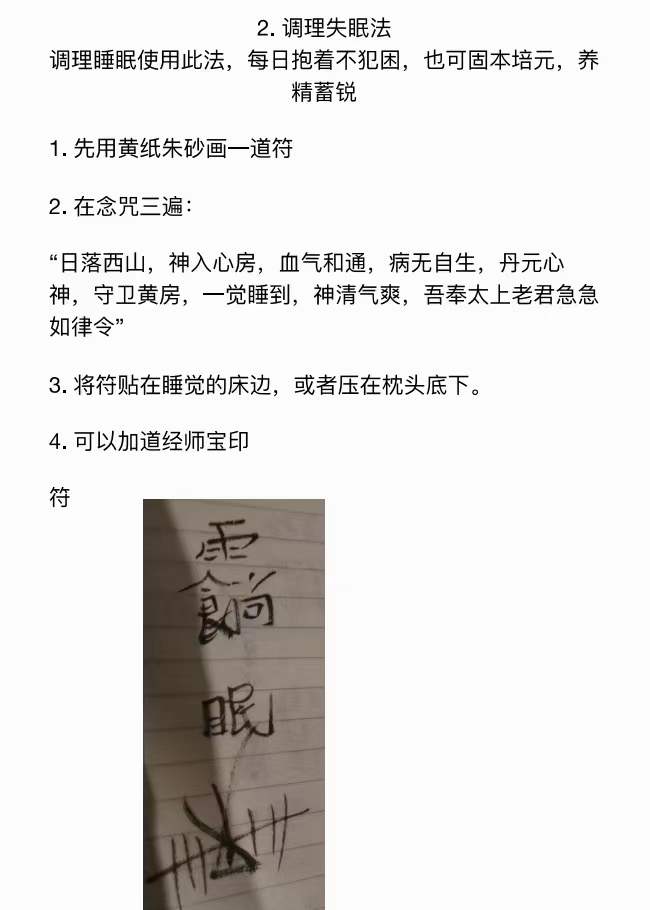 2. 调理失眠法
调理睡眠使用此法，每日抱着不犯困，也可固本培元，养
精蓄锐
1. 先用黄纸朱砂画一道符
2. 在念咒三遍：
“日落西山，神入心房，血气和通，病无自生，丹元心
神，守卫黄房，一觉睡到，神清气爽，吾奉太上老君急急
如律令”
3. 将符贴在睡觉的床边，或者压在枕头底下。
4. 可以加道经师宝印
符
眠